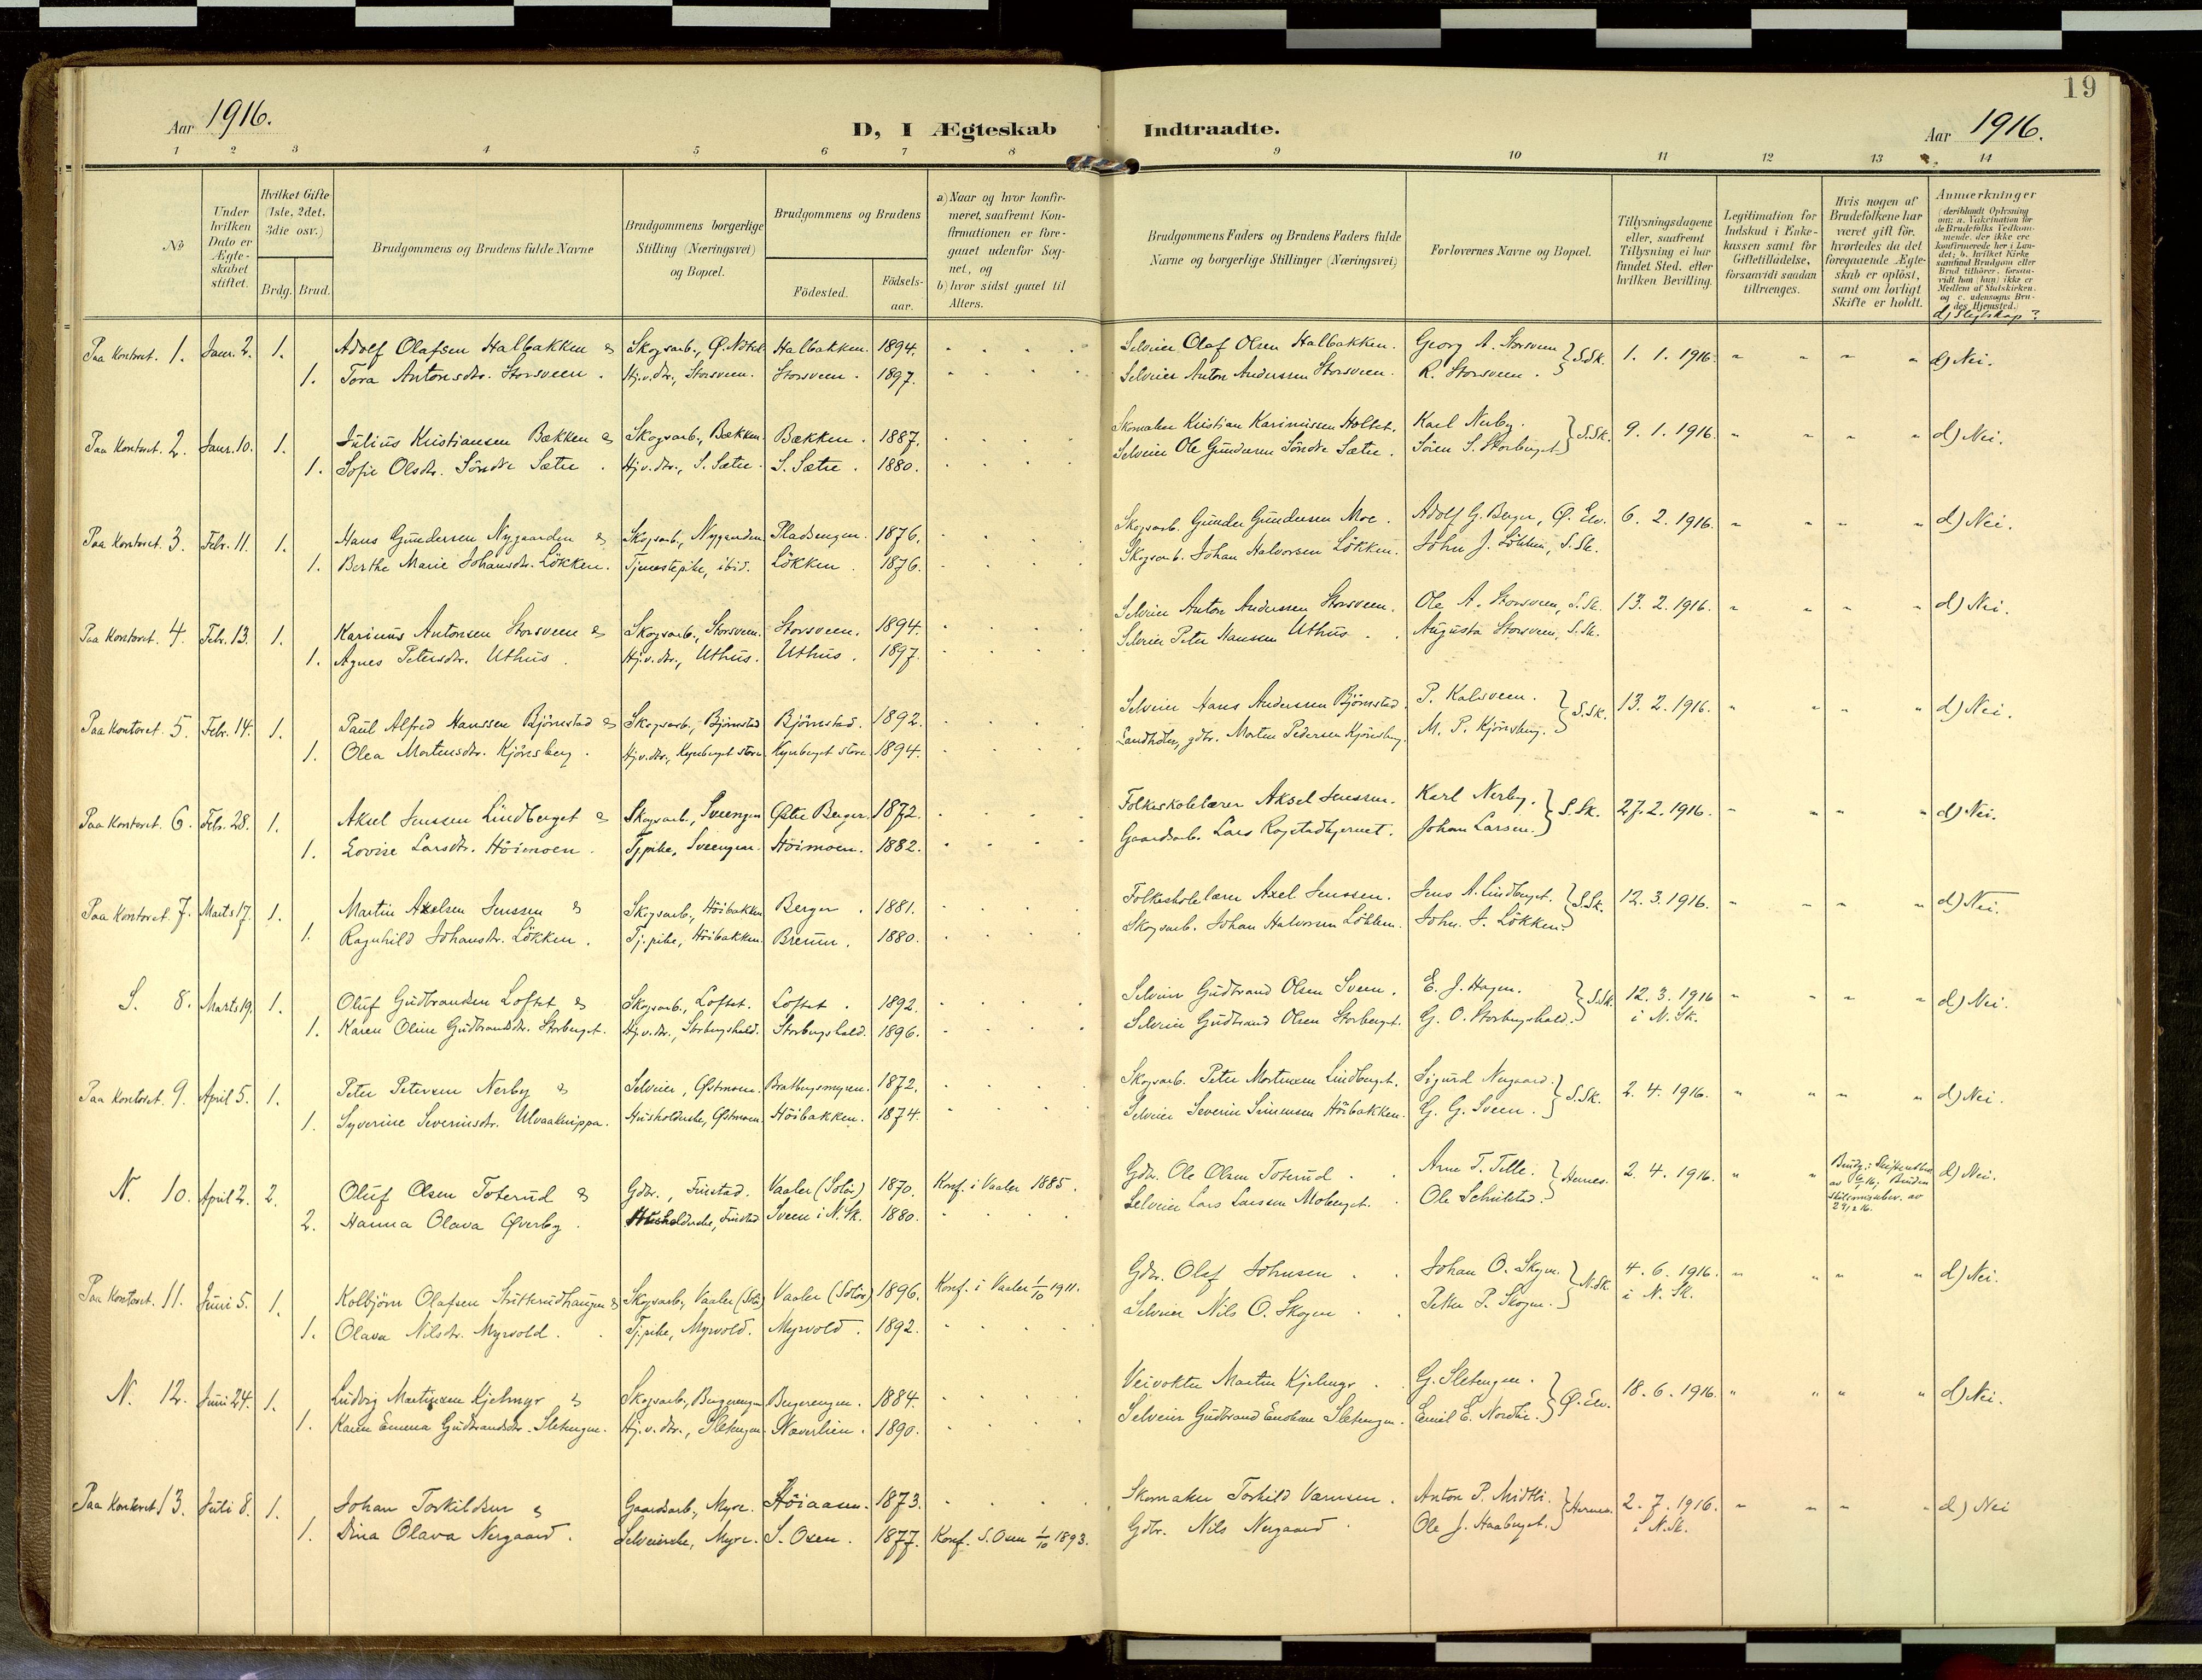 19
Aar 1916.
D, I Ægteskab Indtraadte.
Aar 1916.
1 2 3 4 5 6 7 8 9 10 11 12 13 14
No
Under hvilken Dato er Ægteskabet stiftet.
Hvilket Gifte (1ste, 2det, 3die osv.)
Brdg. Brud.
Brudgommens og Brudens fulde Navne
Brudgommens borgerlige Stilling (Næringsvei) og Bopæl.
Brudgommens og Brudens
Födested. Födselsaar.
a) Naar og hvor konfirmeret, saafremt Konfirmationen er foregaaet udenfor Sognet, og
b) hvor sidst gaaet til Alters.
Brudgommens Faders og Brudens Faders fulde Navne og borgerlige Stillinger (Næringsvei)
Forlovernes Navne og Bopæl.
Tillysningsdagene eller, saafremt Tillysning ei har fundet Sted, efter hvilken Bevilling.
Legitimation for Indskud i Enkekassen samt for Giftetilladelse, forsaavidt saadan tiltrænges.
Hvis nogen af Brudefolkene har været gift för, hvorledes da det foregaaende Ægteskab er oplöst, samt om lovligt Skifte er holdt.
Anmærkninger (deriblandt Oplysning om: a. Vakcination for de Brudefolks Vedkommende, der ikke ere konfirmerede her i Landet; b. hvilket Kirkesamfund Brudgom eller Brud tilhörer, forsaavidt han (hun) ikke er Medlem af Statskirken, og c. udensogns Brudes Hjemsted.)
d) Slegtskap?
Paa Kontoret. 1. Janr. 2. 1. Adolf Olafsen Halbakken & Skogsarb., Halbakken. 1894. Selveier Olaf Olsen Halbakken. Georg A. Storsveen } S.Sk. 1. 1. 1916. d) Nei.
1. Tora Antonsdtr. Storsveen. Hj.v.dtr., Storsveen. Storsveen. 1897. Selveier Anton Anderssen Storsveen. R. Storsveen.
Paa Kontoret. 2. Janr. 10. 1. Julius Kristiansen Bækken & Skogsarb., Bækken. Bækken. 1887. Skomaker Kristian Karinussen Holtet. Karl Nerby. } S.Sk. 9. 1. 1916. d) Nei.
1. Sofie Olsdtr. Söndre Sætre. Hj.v.dtr., S. Sætre. S. Sætre. 1880. Selveier Ole Gundersen Söndre Sætre. Sören S. Storberget.
Paa Kontoret. 3. Febr. 11. 1. Hans Gundersen Nygaarden & Skogsarb., Nygaarden Pladsengen. 1876. Skogsarb. Gunder Gundersen Moe. Adolf G. Berger, Ø. Elv. 6. 2. 1916. d) Nei.
1. Berthe Marie Johansdtr. Lökken. Tjenestepike, ibid. Lökken. 1876. Skogsarb. Johan Halvorsen Lökken. John J. Lökken, S.Sk.
Paa Kontoret. 4. Febr. 13. 1. Karinus Antonsen Storsveen & Skogsarb., Storsveen. Storsveen. 1894. Selveier Anton Anderssen Storsveen. Ole A. Storsveen, S.Sk. 13. 2. 1916. d) Nei.
1. Agnes Petersdtr. Uthus. Hj.v.dtr., Uthus. Uthus. 1897. Selveier Peter Hanssen Uthus. Augusta Storsveen, S.Sk.
Paa Kontoret. 5. Febr. 14. 1. Paul Alfred Hanssen Björnstad & Skogsarb., Björnstad Björnstad. 1892. Selveier Hans Anderssen Björnstad. P. Kalsveen. } S.Sk. 13. 2. 1916. d) Nei.
1. Olea Mortensdtr. Kjönsberg. Hj.v.dtr., Kynberget store Kynberget store 1894. Landhdler, gdbr. Morten Pedersen Kjönsberg. M. P. Kjönsberg.
Paa Kontoret. 6. Febr. 28. 1. Aksel Jenssen Lindberget & Skogsarb., Sveengen Østre Berger. 1872. Folkeskolelærer Aksel Jenssen. Karl Nerby. } S.Sk. 27. 2. 1916. d) Nei.
1. Lovise Larsdtr. Höimoen. Tj.pike, Sveengen. Höimoen. 1882. Gaardsarb. Lars Rogstadkjernet. Johan Larsen.
Paa Kontoret. 7. Marts 17. 1. Martin Axelsen Jenssen & Skogsarb., Höibakken Berger. 1881. Folkeskolelærer Axel Jenssen. Jens A. Lindberget. } S.Sk. 12. 3. 1916. d) Nei.
1. Ragnhild Johansdtr. Lökken. Tj.pike, Höibakken. 1880. Skogsarb. Johan Halvorsen Lökken. John J. Lökken.
S. 8. Marts 19. 1. Oluf Gudbrandsen Loftet & Skogsarb., Loftet. Loftet. 1892. Selveier Gudbrand Olsen Sveen. E. J. Hagen. } S.Sk. 12. 3. 1916 i N. Sk. d) Nei.
1. Karen Oline Gudbrandsdtr. Storberget. Hj.v.dtr., Storbergshald. Storbergshald. 1896. Selveier Gudbrand Olsen Storberget. G. O. Storbergshald.
Paa Kontoret. 9. April 5. 1. Peter Petersen Nerby & Selveier, Østmoen. Bratbergsmyren. 1872. Skogsarb. Peter Mortensen Lindberget. Sigurd Nergaard. } S.Sk. 2. 4. 1916. d) Nei.
1. Syverine Severinsdtr. Ulvaaknippa. Husholderske, Østmoen. Höibakken. 1874. Selveier Severin Simensen Höibakken. G. G. Sveen.
N. 10. April 2. 2. Oluf Olsen Toterud & Gdbr., Finstad. Vaaler (Solör) 1870. Konf. i Vaaler 1885. Gdbr. Ole Olsen Toterud. Arne T. Telle. } Hernes. 2. 4. 1916. d) Nei.
2. Hanna Olava Øverby. Husholderske, Finstad Sveen i N.Sk. 1880. Selveier Lars Larssen Moberget. Ole Schulstad.
Paa Kontoret. 11. Juni 5. 1. Kolbjörn Olafsen & Skogsarb., Vaaler (Solör) Vaaler (Solör) 1896. Konf. i Vaaler 1/10 1911. Gdbr. Olaf Johnsen. Johan O. Skogen. } N.Sk. 4. 6. 1916. i N. Sk. d) Nei.
1. Olava Nilsdtr. Myrvold. Tj.pike, Myrvold. Myrvold. 1892. Selveier Nils O. Skogen. Petter P. Skogen.
N. 12. Juni 24. 1. Ludvig Martinsen Kjelmyr & Skogsarb., Bergerengen Bergerengen. 1884. Veivokter Martin Kjelmyr. G. Sletengen. } Ø. Elv. 18. 6. 1916. d) Nei.
1. Karen Emma Gudbrandsdtr. Sletengen. Hj.v.dtr., Sletengen. Næverlien. 1890. Selveier Gudbrand Sletengen. Emil E. Nordli.
Paa Kontoret. 13. Juli 8. 1. Johan Torkildsen & Gaardsarb., Myre. Höiaasen. 1873. Skomaker Torkild Værnsen. Anton P. Midtli. } Hernes. 2. 7. 1916. i N.Sk. d) Nei
1. Dina Olava Nergaard. Selveierske, Myre. S. Osen. 1877. Konf. S. Osen 1/10 1893. Gdbr. Nils Nergaard. Ole J. Haaberget.